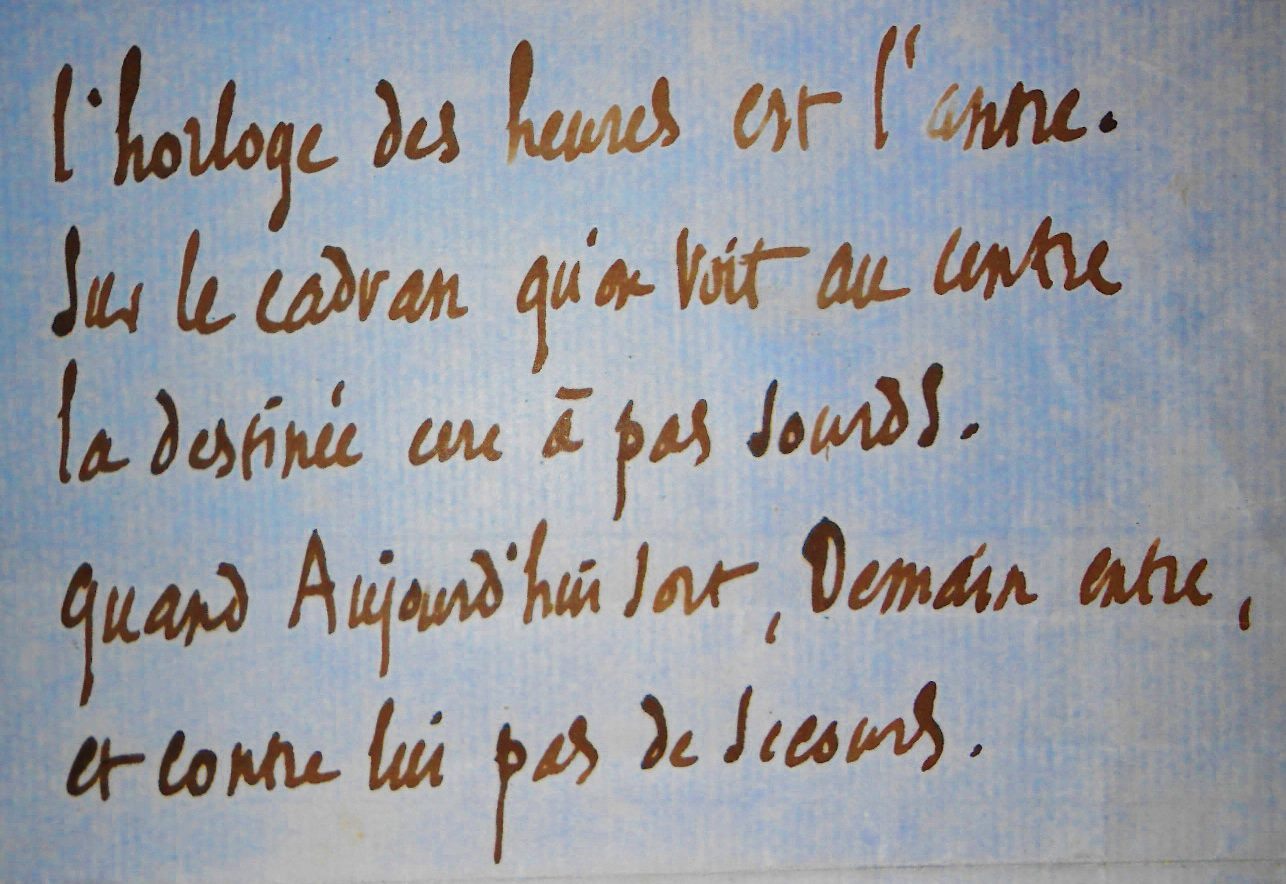 l'horloge des heures est l'antre.
Sur le cadran qu'on voit au centre
la destinée erre à pas sourds.
quand Aujourd'hui sort, Demain entre,
et contre lui pas de secours.